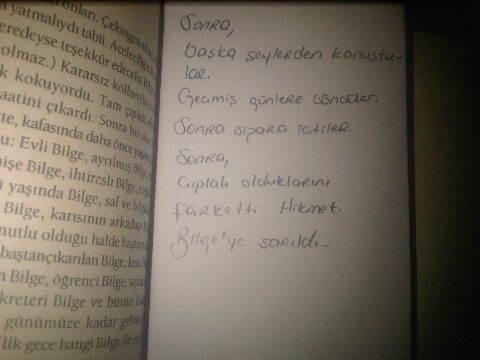 onları. Çekingen
yatmalıydı tabii. Acelecili
eredeyse teşekkür edecekti
olmaz.) Kararsız kollarıyla
k kokuyordu. Tam çıplak
aatini çıkardı. Sonra bir
te, kafasında daha önce yaşa
u: Evli Bilge, ayrılmış Bilge
işe Bilge, ihtiraslı Bilge
yaşında Bilge, saf ve
Bilge, karısının arkadaşı
mutlu olduğu halde baştan
baştançıkarılan Bilge,
n Bilge, öğrenci Bilge,
kreteri Bilge ve bütün
günümüze kadar gelmiş
İlk gece hangi Bilge ile
Sonra,
başka şeylerden konuştu-
lar.
Geçmiş günlere döndüler.
Sonra sigara içtiler.
Sonra,
Çıplak olduklarını
farketti Hikmet.
Bilge'ye sarıldı..